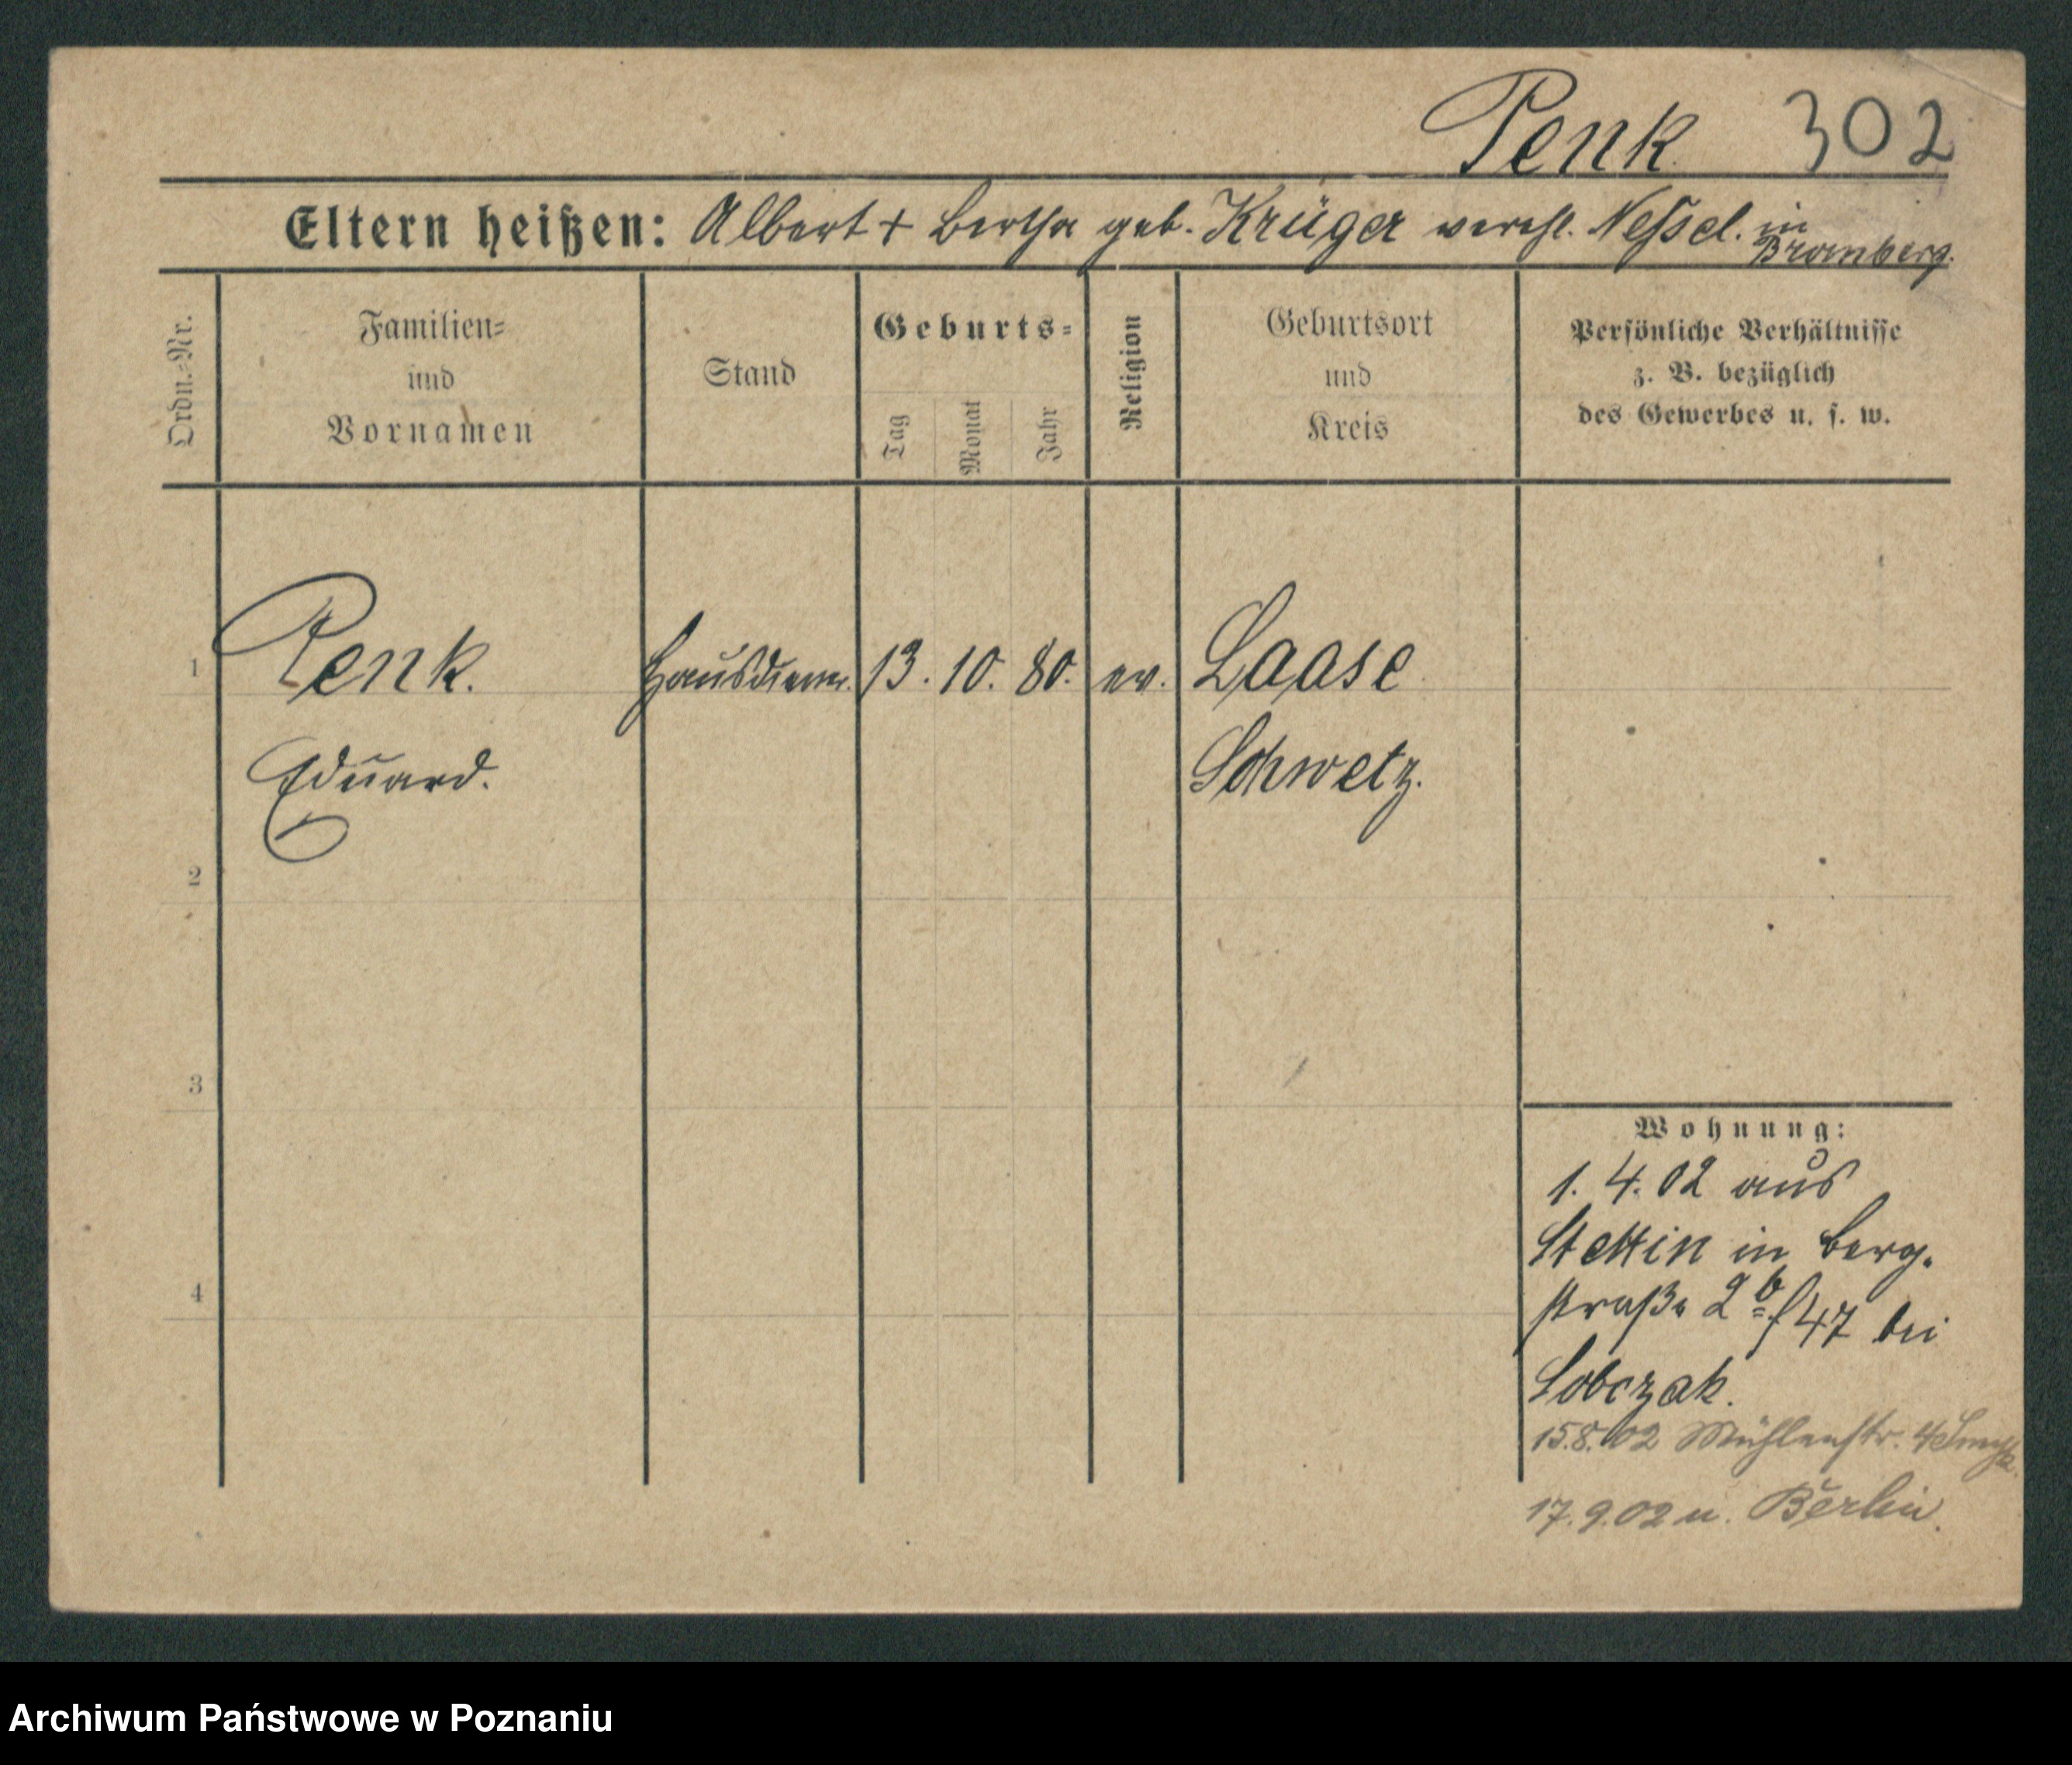 Penk 302
Eltern heißen: Albert + Bertha geb. Krüger verehl. Nessel. in Bromberg.
Ordn.-Nr.
Familien= und Vornamen
Stand
Geburts=
Tag
Monat
Jahr
Religion
Geburtsort und Kreis
Persönliche Verhältnisse
z. B. bezüglich
des Gewerbes u. s. w.
1 Penk. Hausdiener. 13. 10. 80. ev. Laase
Eduard. Schwetz.
2
3
4
Wohnung:
1. 4. 02 aus
Stettin in Berg-
straße 2 b / 47 bei
Sobczak.
15.8.02 Mühlenstr. 4
17.9.02 n. Berlin.
Archiwum Państwowe w Poznaniu